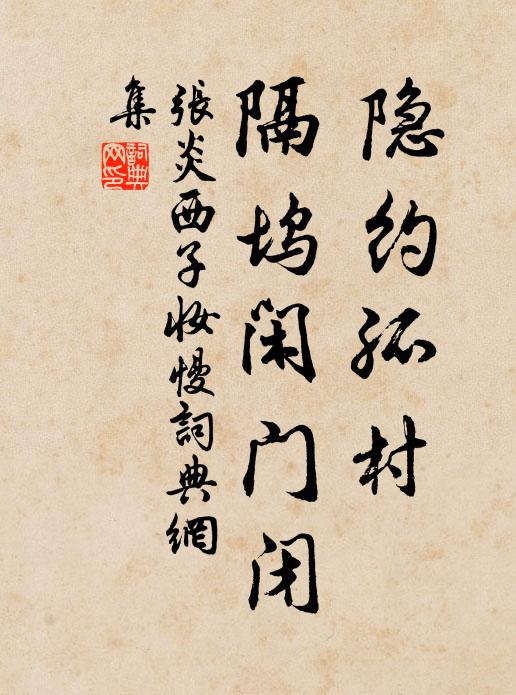 隐约孤村
隔坞闲门闭
張炎西子妆慢詞典網
集
詞典
网印